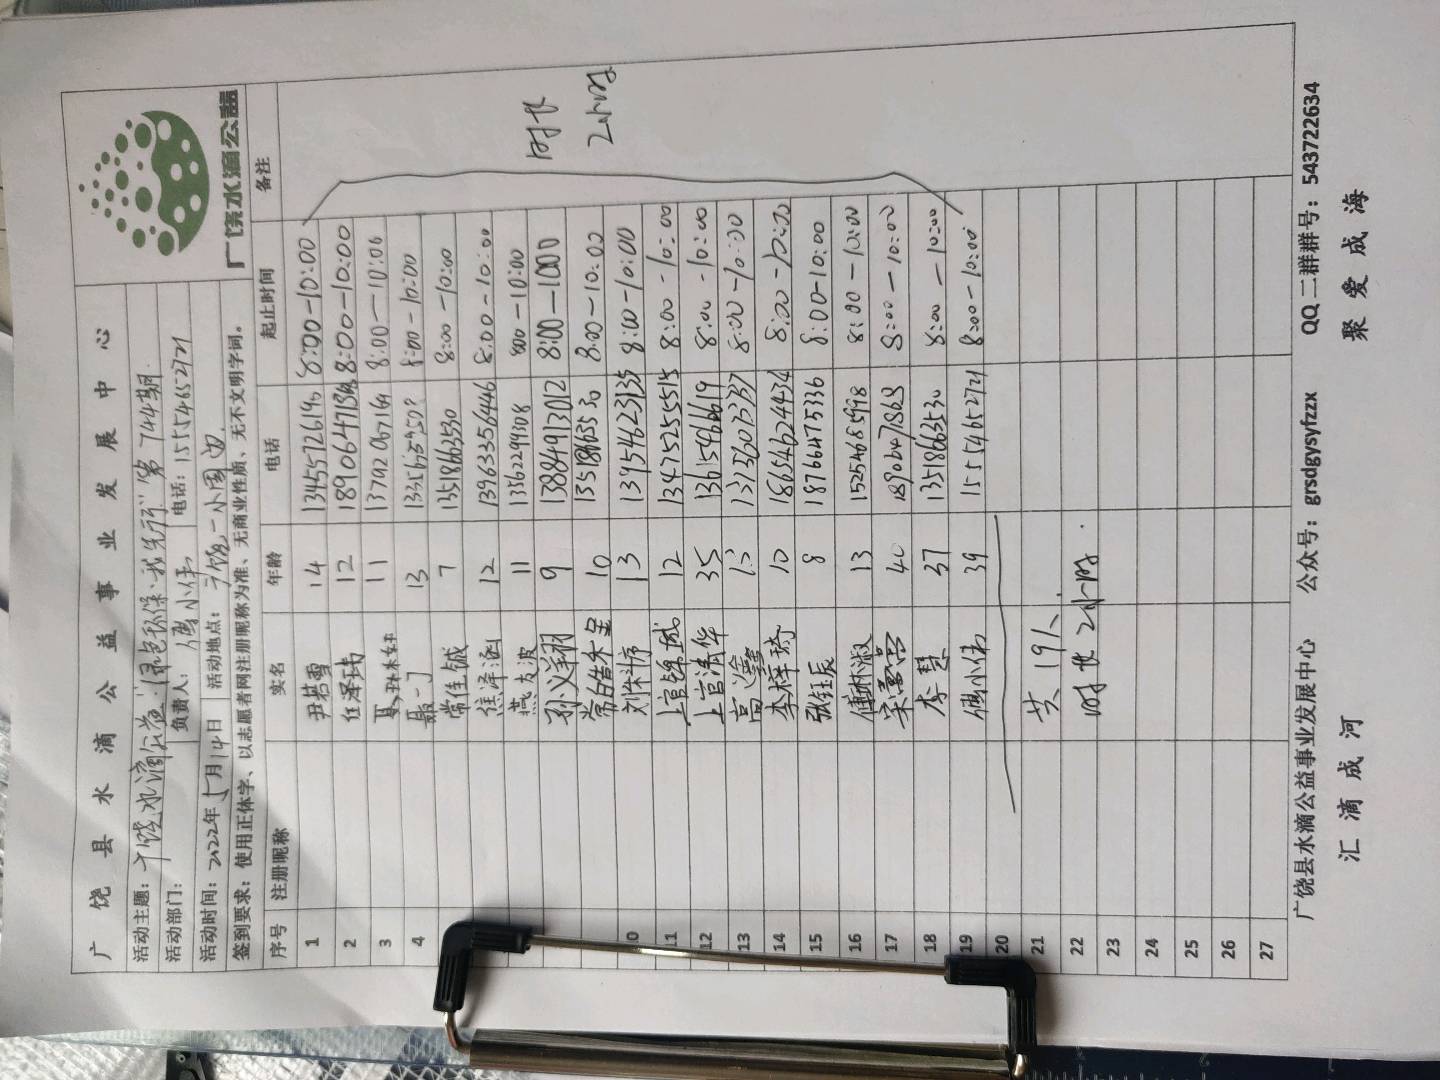 广饶县水滴公益事业发展中心
广饶水滴公益
活动主题：广饶水滴公益"绿色环保·我先行"第744期.
活动部门： 负责人：傅小伟 电话:15554652721
活动时间：2022年5月14日 活动地点：广饶一小周边
签到要求：使用正体字、以志愿者网注册昵称为准、无商业性质、无不文明字词。
序号 注册昵称 实名 年龄 电话 起止时间 备注
1 尹若雪 14 13455726190 8:00-10:00
2 任泽玮 12 8:00-10:00
3 11 13792067169 8:00-10:00
4 聂一丁 13 8:00-10:00
常佳铖 7 13518663530 8:00-10:00
12 13963356446 8:00-10:00
燕友波 11 13562299308 800-10:00
孙义翔 9 13884913012 8:00-1000
10 8:00-10:00
0 13 13954623135 8:00-10:00
11 12 13475255515 8:00-10:00
12 上官清华 35 13615466619 8:00-10:00
13 8:00-10:00
14 李梓琦 10 18654624434 8:00-10:00
15 张钰辰 8 18766475336 8:00-10:00
16 傅林淑 13 15254685998 8:00-10:00
17 40 18906471868 8:00-10:00
18 李慧 37 13518663530 8:00-10:00
19 傅小伟 39 15554652721 8:00-10:00
时长
2小时
20
21 共19人.
22 时长2小时.
23
24
25
26
27
广饶县水滴公益事业发展中心 公众号：grsdgysyfzzx QQ二群群号：543722634
汇滴成河 聚爱成海